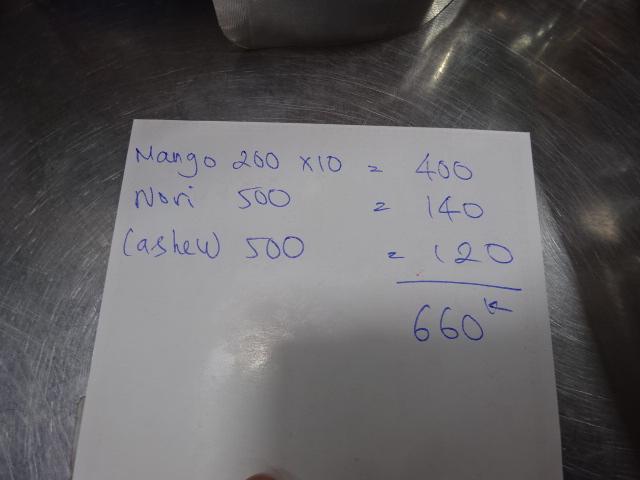 Mango 200 x10 = 400
Nori 500 = 140
Cashew 500 = 120
660K